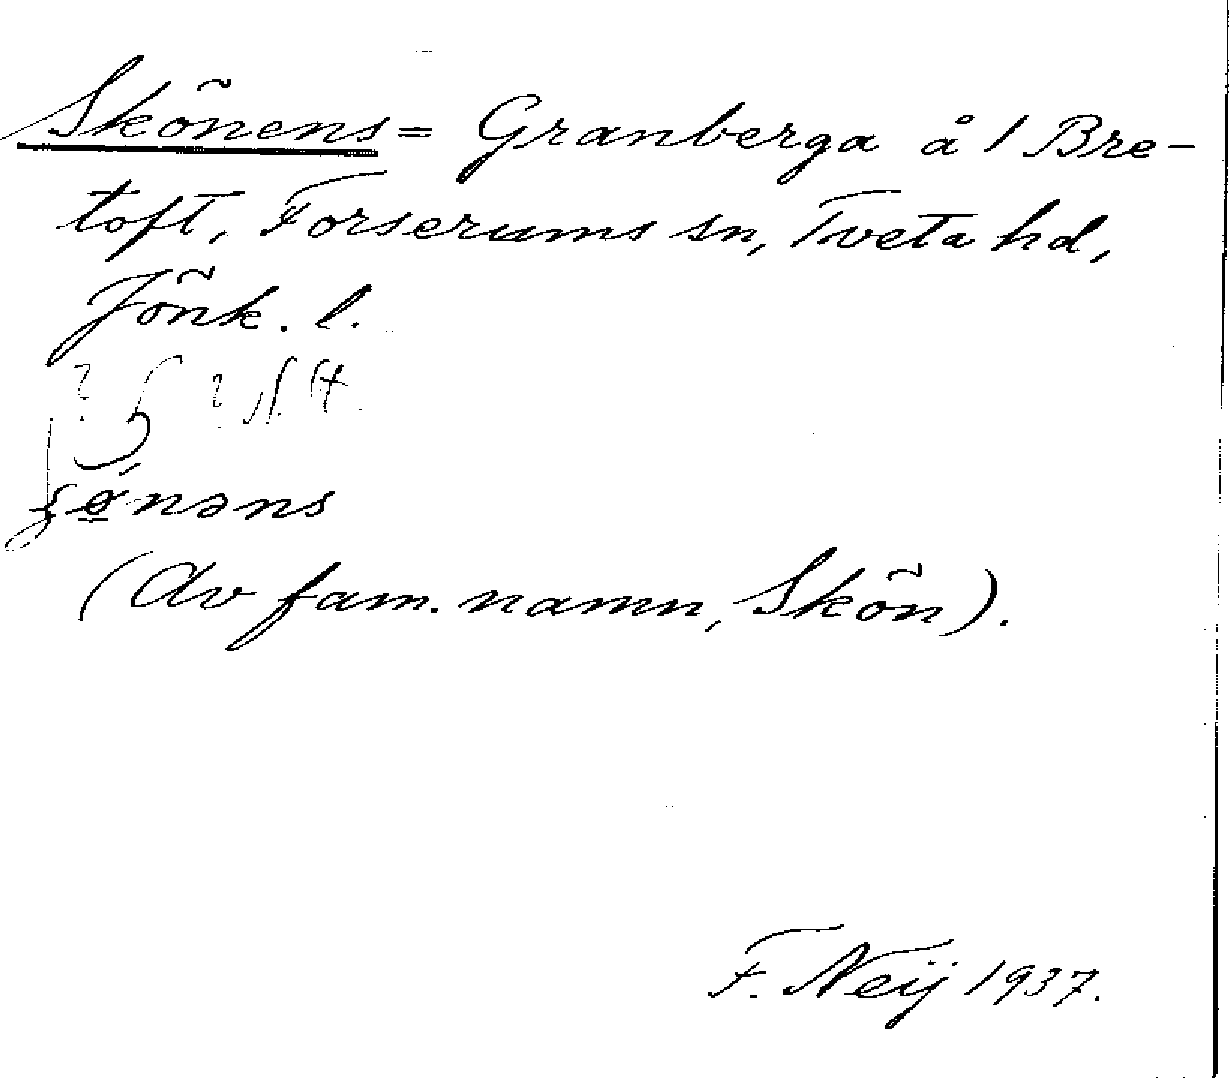 Skönens = Granberga å 1 Bre-
toft, Forserums sn, Tveta hd,
Jönk. l.
(Av fam. namn, Skön).
F. Neij 1937.